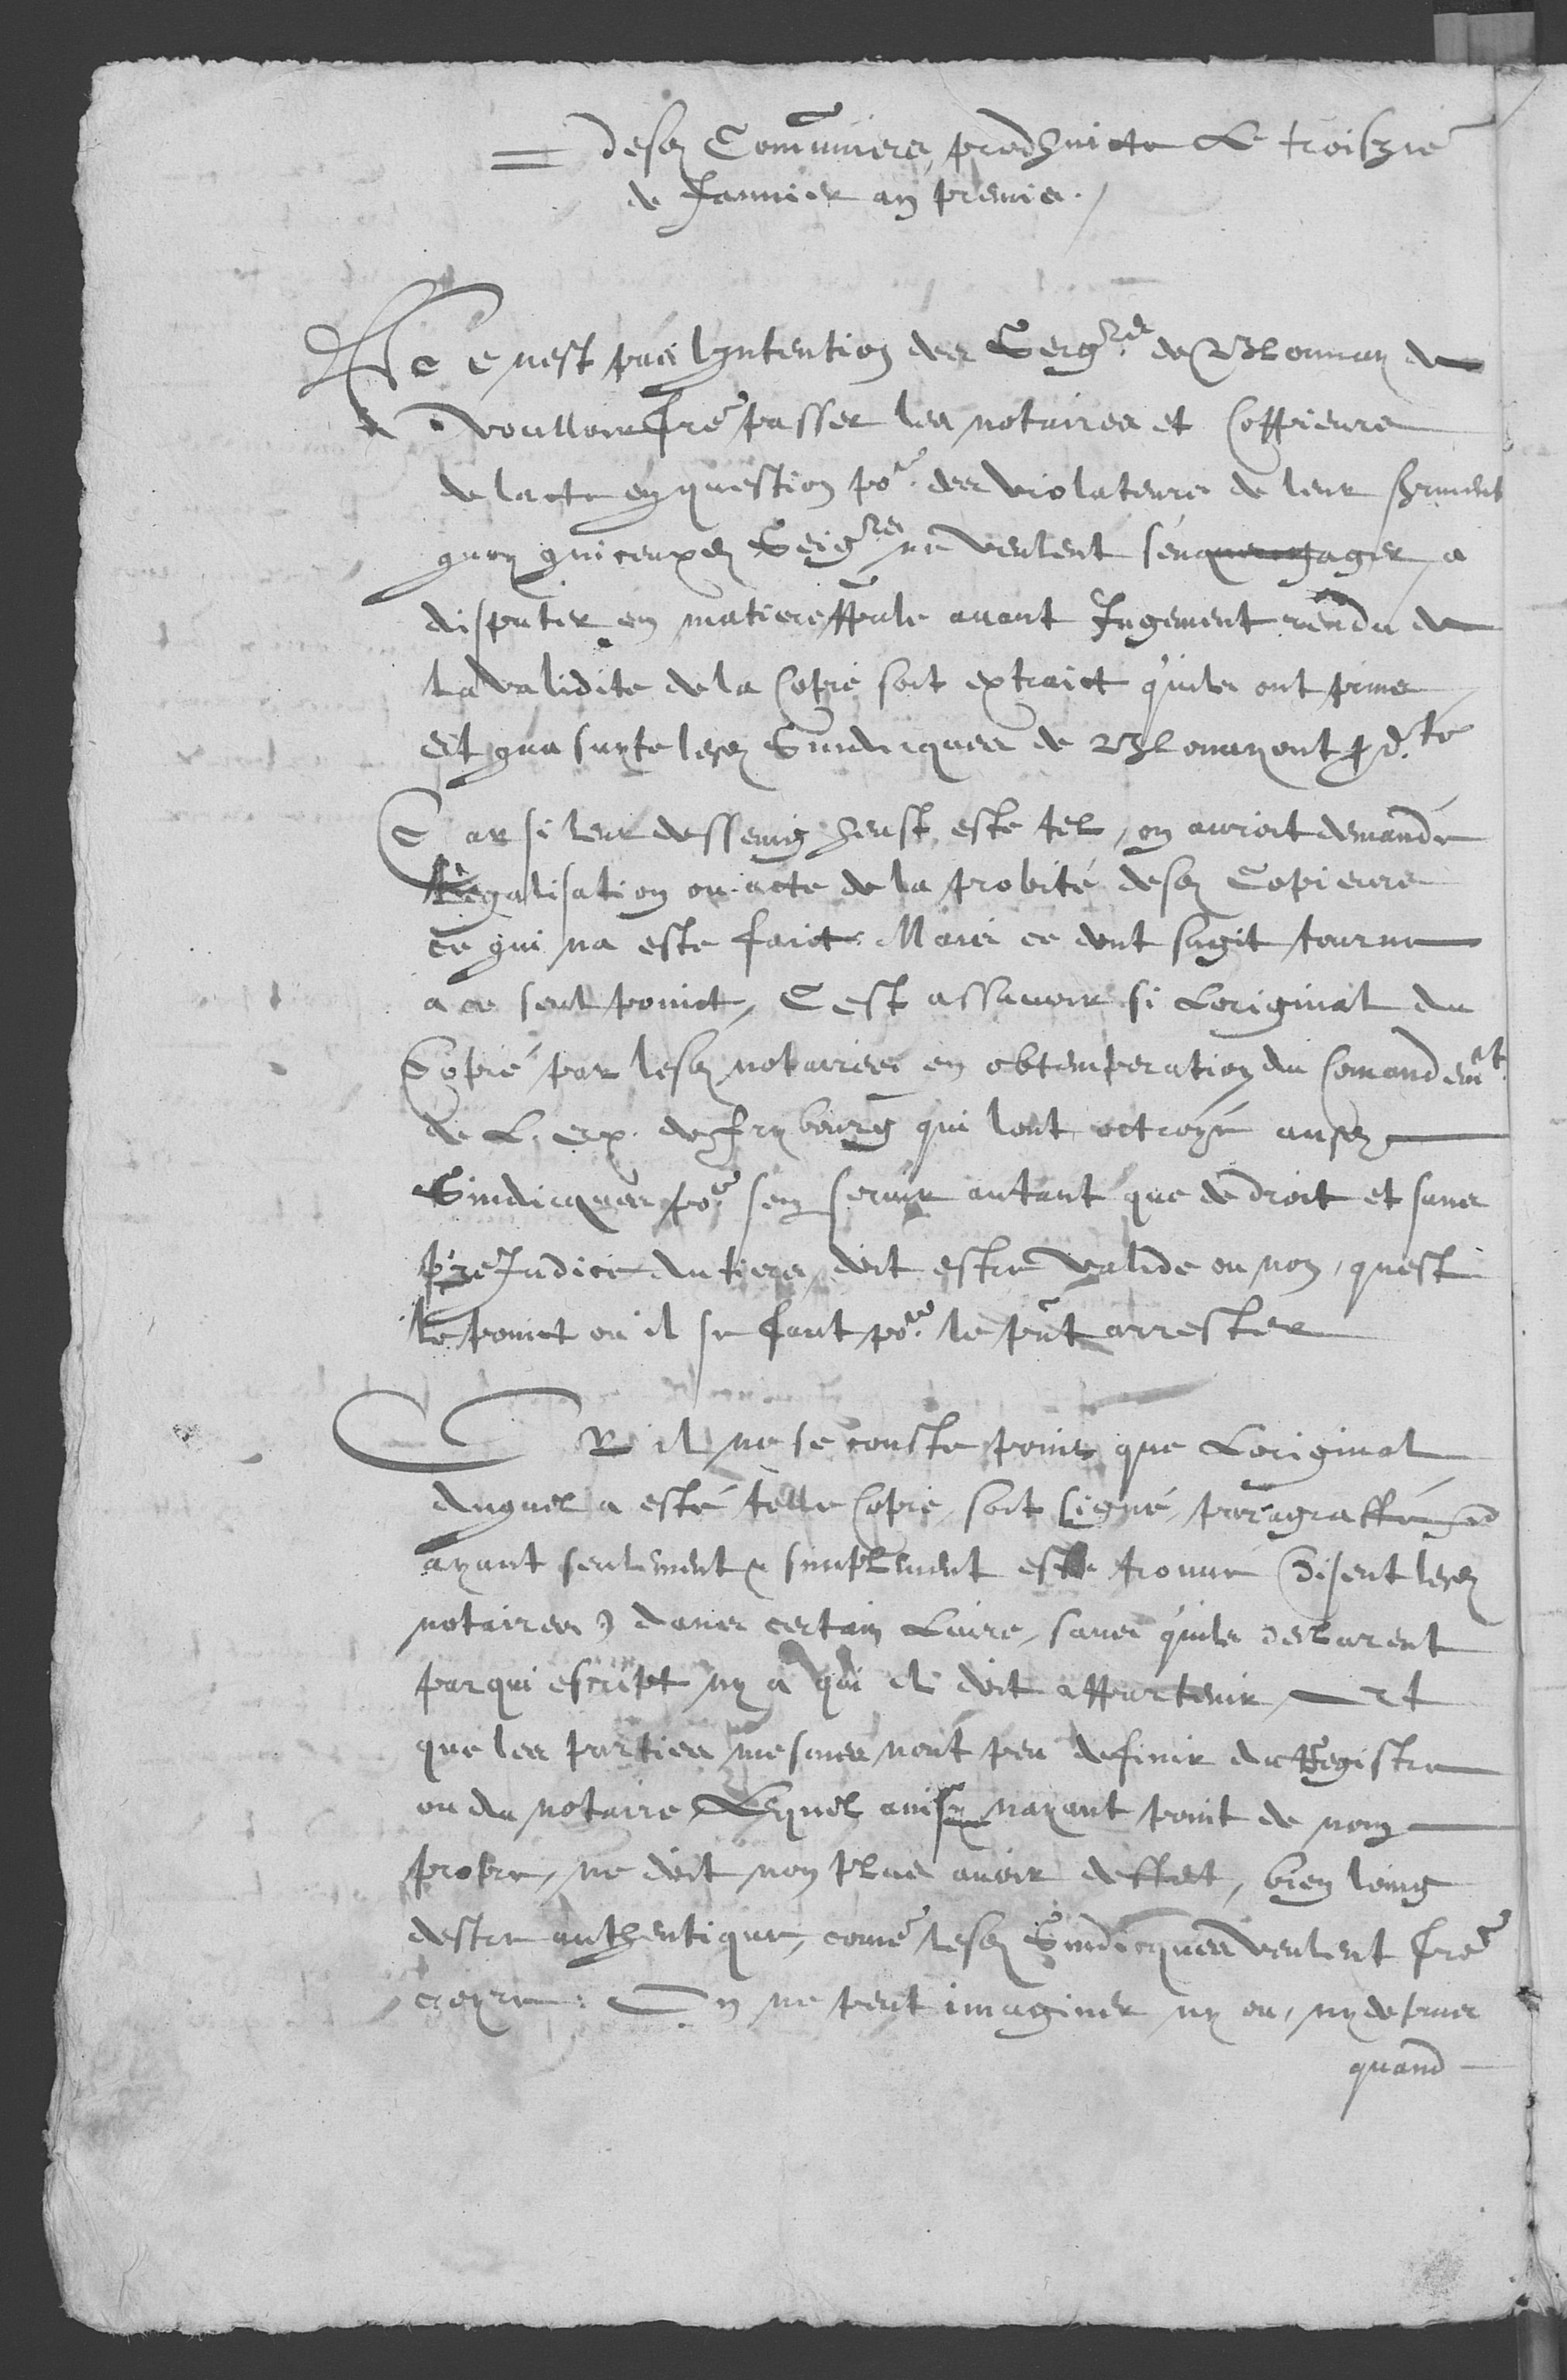 = desd Communiers, prodhuicte Le troiszie
de Januier an premis.
Ce nest pas Lyntention des Seigrs de Blonnay de
voulloir fre passer les notaires et Coppieurs
de lacte en question por des violateurs de leur serment
quoy quiceuxd Seigrs ne veulent senga ger, a
disputer en matiere ppale auant Jugement rendu de
la validite de la Copie soit extraict quils ont prins
et qua suyte lesd Sindicques de Blonay ont pdte
Car si leur desseing heust este tel, on auroit demandé
Legalisation ou acte de la probité desd Copieurs
ce qui na este faict. Mais ce dont sagit tourne
a ce seul poinct, Cest assauoir si Loriginal du
Copié par lesd notaires en obtemperation du Comandemt
de L. Ex. de frybourg qui lont octroyé ausd
Sindicques por sen seruir autant que de droit et sans
preJudice du tiers, doit estre valide ou non, quest
le poinct ou il se faut por le pnt arrester
Or il ne se conste point que Loriginal
duquel a esté telle Copie, soit signé, paragraffé
ayant seulement & simplement este trouué (disent lesd
notaires) dans certain Liure, sans quils declarent
par qui escript ny a qui il doit appartenir, et
que les parties mesmes nont peu definir du Registre
ou du notaire, Lequel ainsy nayant point de nom
propre, ne doit non plus auoir deffect, bien loing
destre authentique, come lesd Sindicques veulent fre
croyre. On ne peut imaginer ny ou, ny depuis
quand